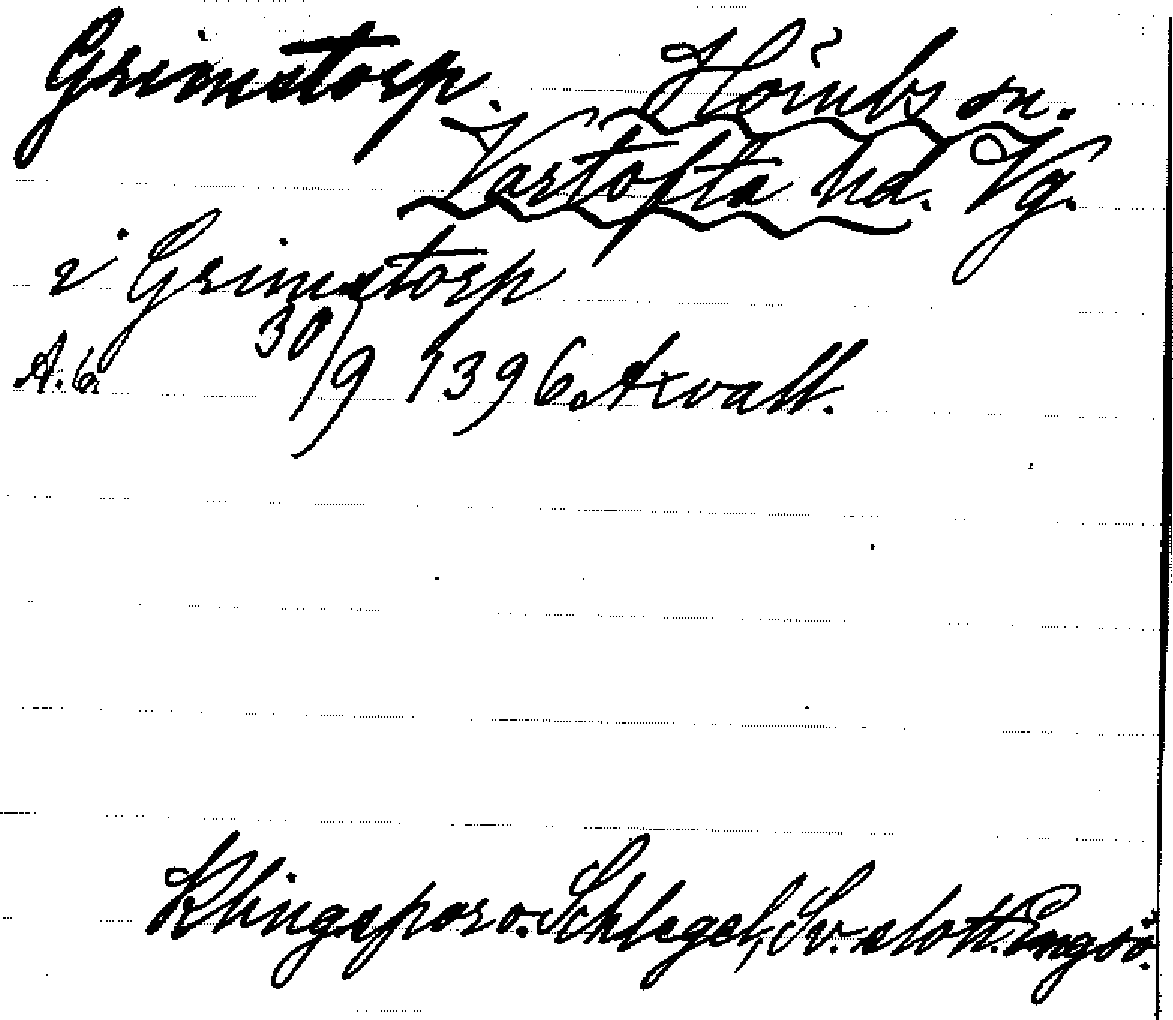 Grimstorp. Hömbs sn.
Vartofta hd. Vg.
i Grimstorp
A. b. 30/9 1396. Axvall.
Klingspor o. Schlegel, Sv. slott. Engsö.